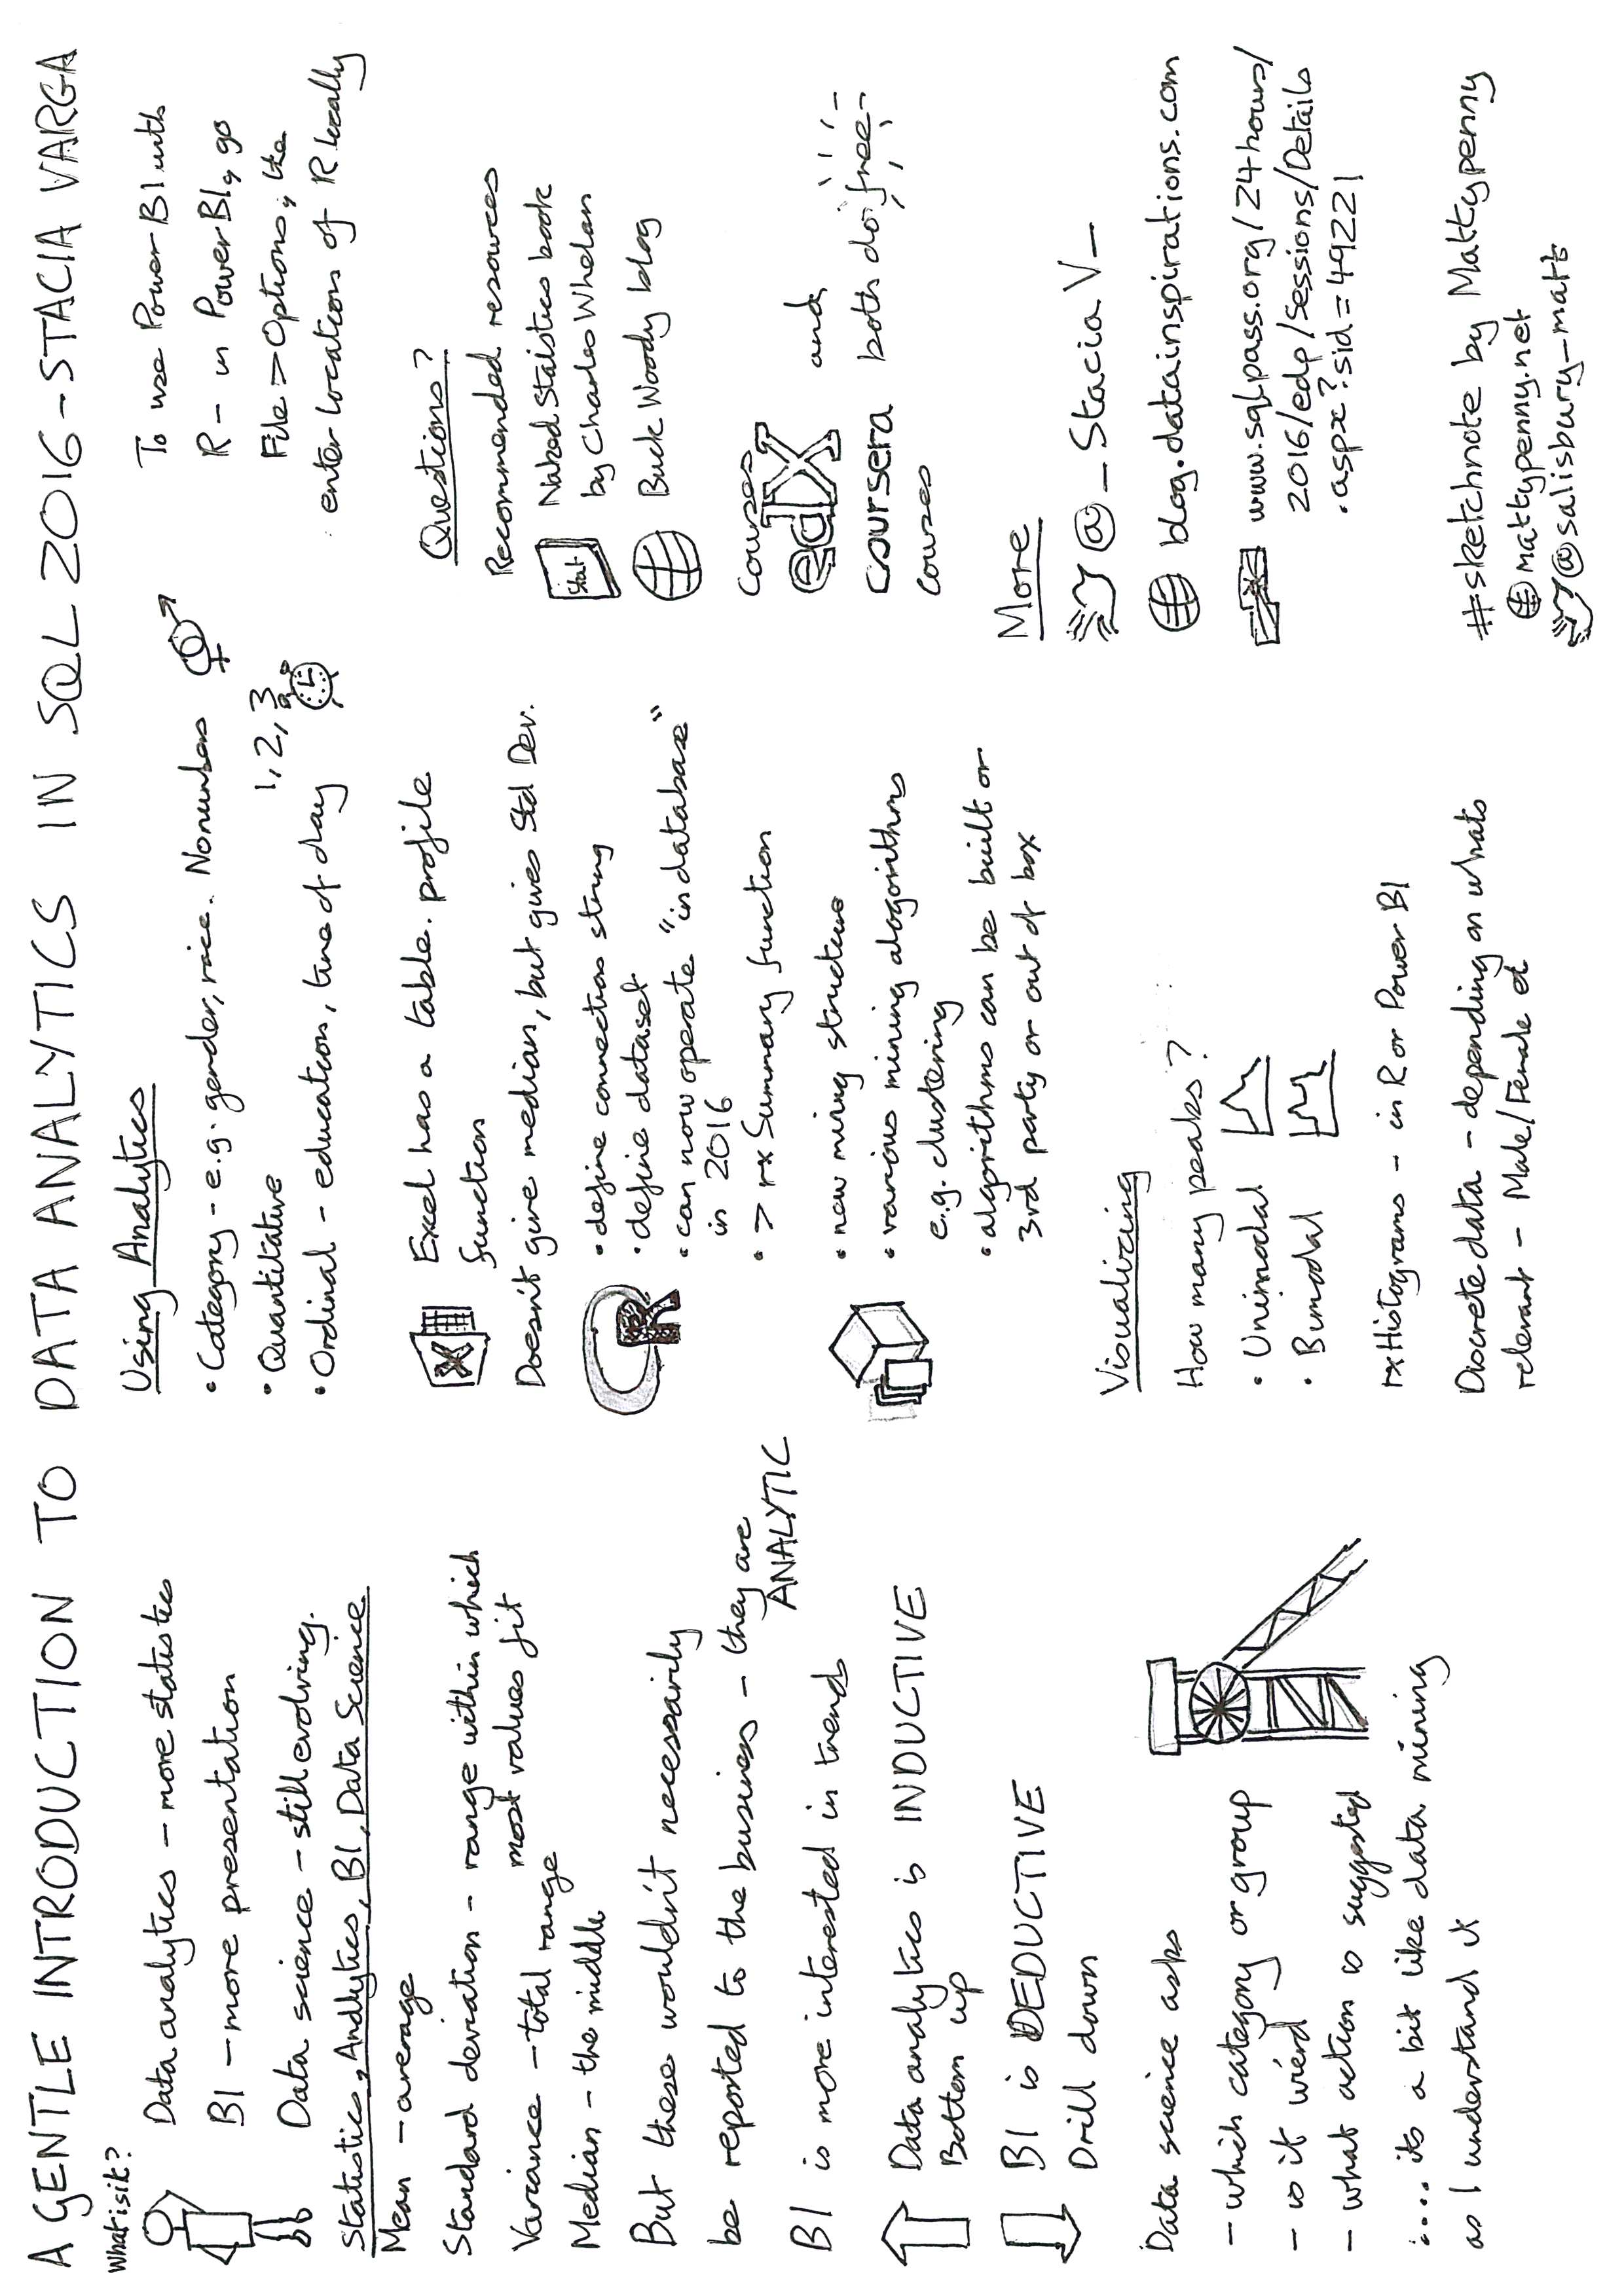 A GENTLE INTRODUCTION TO DATA ANALYTICS IN SQL 2016 - STACIA VARGA
What is it?
Data analytics - more statistics
BI - more presentation
Data science - still evolving.
Statistics, Analytics, BI, Data Science
Mean - average
Standard deviation - range within which
most values fit
Variance - total range
Median - the middle
But these wouldn't necessarily
be reported to the business - they are
ANALYTIC
BI is more interested in trends
Data analytics is INDUCTIVE
Bottom up
BI is DEDUCTIVE
Drill down
Data science asks
- which category or group
- is it wierd
- what action is suggested
.... its a bit like data mining
as I understand it
Using Analytics
• Category - e.g. gender, race. Nonumbers
• Quantitative 1, 2, 3
• Ordinal - education, time of day
Excel has a table.profile
function
Doesn't give median, but gives Std Dev.
• define connection string
• define dataset
• can now operate "in database"
in 2016
• > rxSummary function
• new mining structure
• various mining alogorithms
e.g. clustering
• algorithms can be built or
3rd party or out of box
Visualizing
How many peaks?
• Unimodal
• Bimodal
rxHistograms - in R or Power BI
Discrete data - depending on whats
relevant - Male/Female et
To use Power BI with
R - in Power BI, go
File > Options, the
enter locations of R locally
Questions?
Recommended resources
Stat
Naked Staistics book
by Charles Whelan
Buck Woody blog
Courses
edX and
coursera both do free
courses
More
@_StaciaV_
blog.datainspirations.com
www.sqlpass.org/24hours/
2016/edp/Sessions/Details
.aspx?sid=49221
#sketchnote by Mattypenny
mattypenny.net
@salisbury-matt